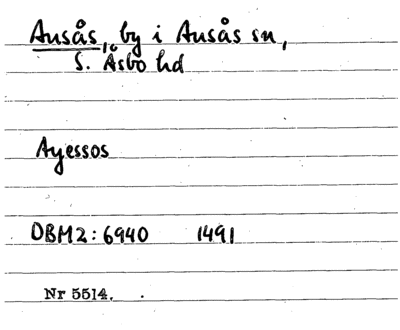 Ausås, by i Ausås sn,
S. Åsbo hd
Ayessos
DBM2: 6940 1491
Nr 5514.